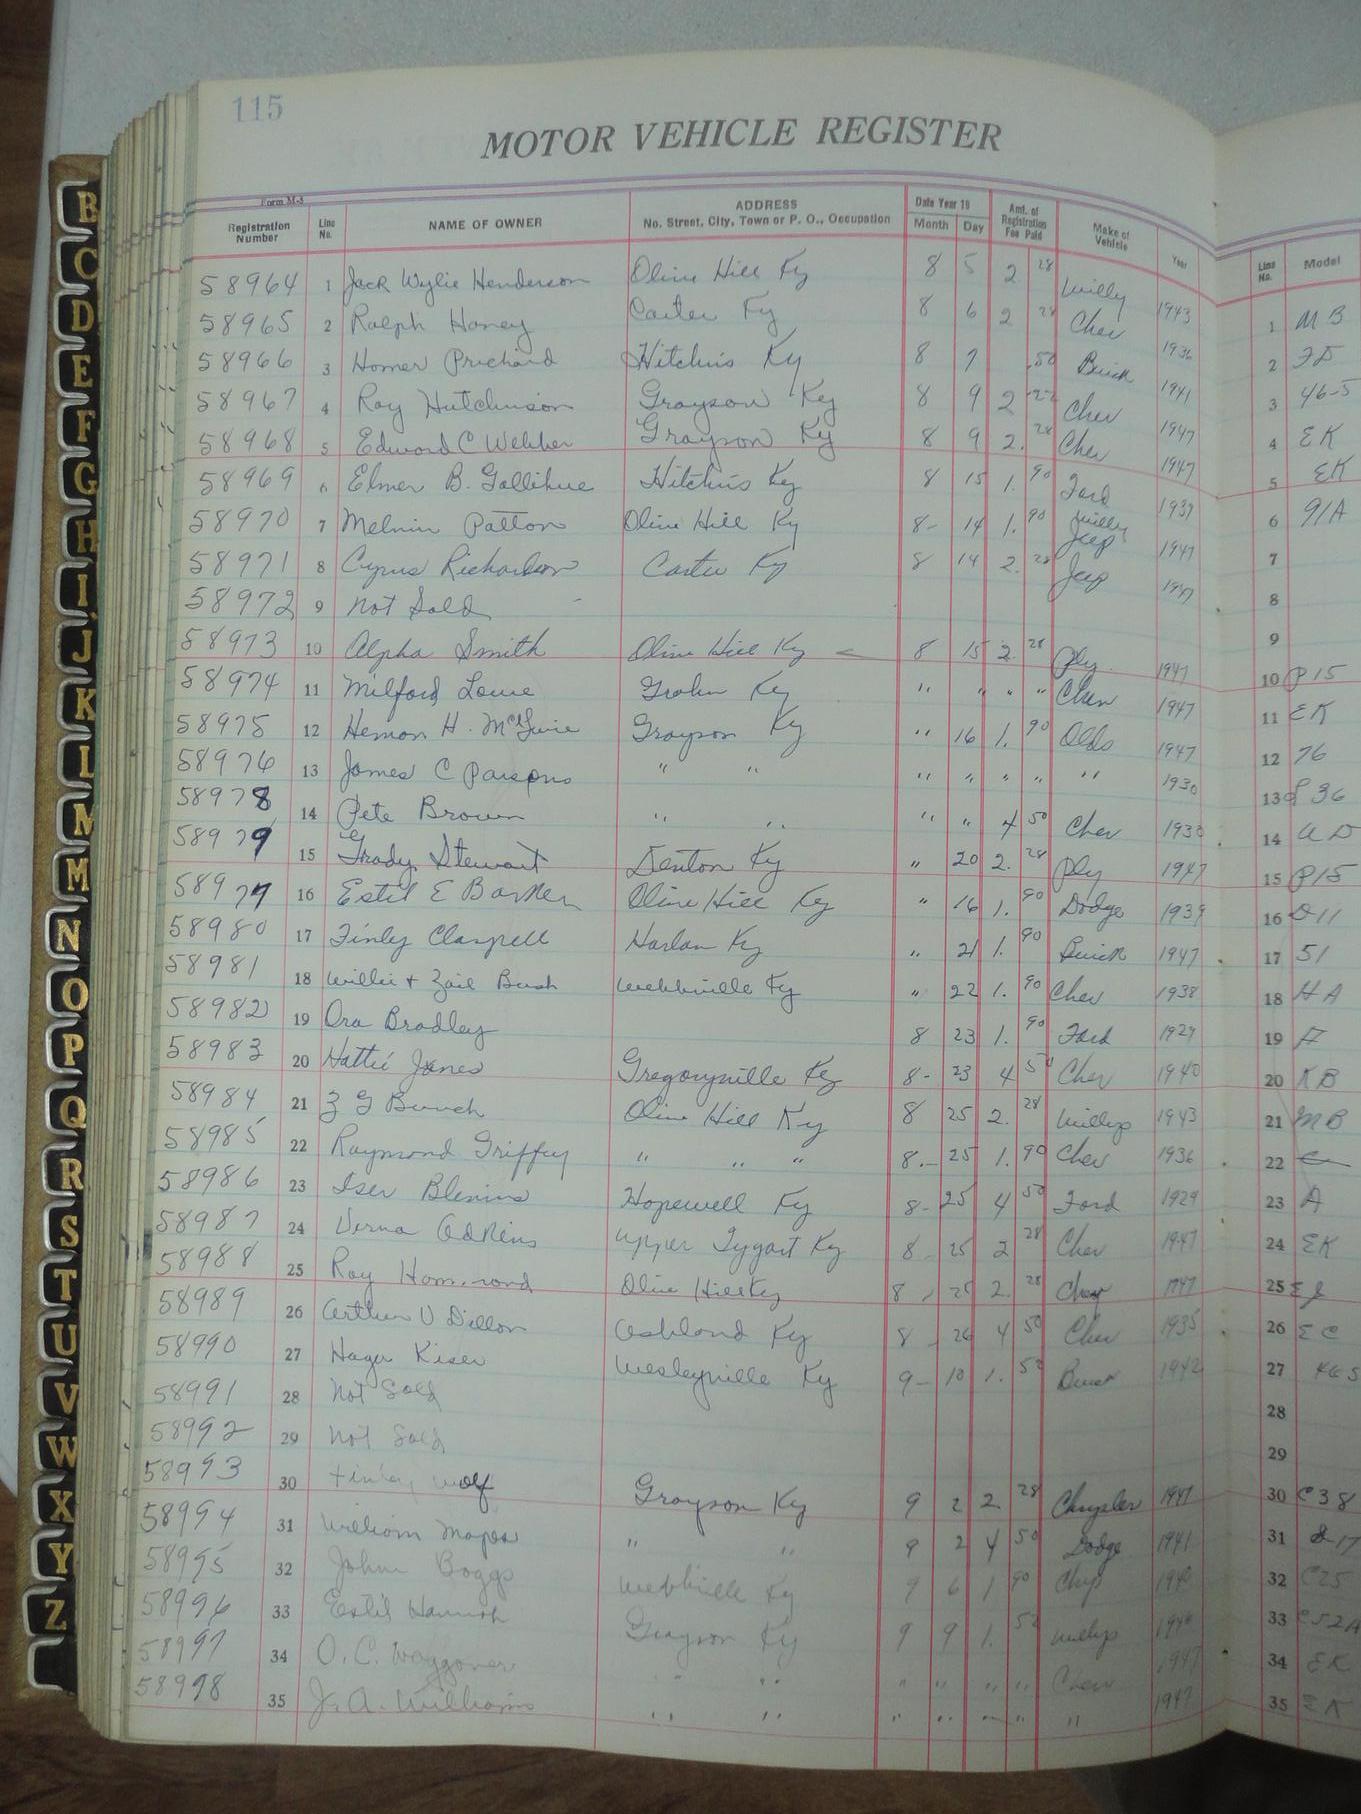 115
MOTOR VEHICLE REGISTER
Form M-3
Registration Number Line No. NAME OF OWNER ADDRESS No. Street, City, Town or P. O., Occupation Date Year 19 Month Day Amt. of Registration Fee Paid Make of Vehicle Year Line No. Model
58964 1 Jack Wylie Henderson Olive Hill Ky 8 5 2 28 Willy 1943 1 MB
58965 2 Ralph Haney Carter Ky 8 6 2 28 Chev 1936 2 FD
58966 3 Homer Prichard Hitchins Ky 8 7 .50 Buick 1941 3 46-S
58967 4 Roy Hutchinson Grayson Ky 8 9 2 Chev 1947 4 EK
58968 5 Edward C Webber Grayson Ky 8 9 2. 28 Chev 1947 5 EK
58969 6 Elmer B. Gollihue Hitchins Ky 8 15 1. 90 Ford 1939 6 91A
58970 7 Melvin Patton Olive Hill Ky 8- 14 1. 90 Willy Jeep 1947 7
58971 8 Cyrus Richardson Carter Ky 8 14 2. 28 Jeep 1947 8
58972 9 Not Sold 9
58973 10 Alpha Smith Olive Hill Ky 8 15 2. 28 Ply 1947 10 P15
58974 11 Milford Lowe Grahn Ky " " " " Chev 1947 11 EK
58975 12 Hemon H. McGuire Grayson Ky " 16 1. 90 Olds 1947 12 76
58976 13 James C Parsons " " " " " " " 1930 13 36
58978 14 Pete Brown " " " " 4 50 Chev 1930 14 AD
58979 15 Grady Stewart Denton Ky " 20 2. 28 Ply 1947 15 P15
58977 16 Estil E Barker Olive Hill Ky " 16 1. 90 Dodge 1939 16 D11
58980 17 Finley Claypell Harlan Ky " 21 1. 90 Buick 1947 17 51
58981 18 Willie + Zail Bush Webbville Ky " 22 1. 90 Chev 1938 18 HA
58982 19 Ora Bradley 8 23 1. 90 Ford 1929 19 A
58983 20 Hattie Jones Gregoryville Ky 8- 23 4 50 Chev 1940 20 KB
58984 21 Z G Burch Olive Hill Ky 8 25 2. 28 Willys 1943 21 MB
58985 22 Raymond Griffey " " " 8.- 25 1. 90 Chev 1936 22
58986 23 Iser Blevins Hopewell Ky 8- 25 4 50 Ford 1929 23 A
58987 24 Verna Adkins Upper Tygart Ky 8 25 2 28 Chev 1947 24 EK
58988 25 Roy Hammond Olive Hill Ky 8 25 2. 28 Chev 1947 25 EJ
58989 26 Arthur V Dillon Ashland Ky 8 26 4 50 Chev 1935 26 EC
58990 27 Hager Kiser Wesleyville Ky 9- 10 1. 52 Buick 1942 27 46S
58991 28 Not Sold 28
58992 29 Not Sold 29
58993 30 Finley Wolf Grayson Ky 9 2 2 28 Chrysler 1947 30 C38
58994 31 William Mapes " " 9 2 4 50 Dodge 1941 31 D17
58995 32 John Boggs Webbville Ky 9 6 1 90 1940 32 C25
58996 33 Estil Hannah Grayson Ky 9 9 1. 52 Willys 1946 33 C52A
58997 34 O. C. Waggoner " " " " " " Chev 1947 34 EK
58998 35 J. A. Williams " " " " " " " 1947 35 EK
B
C
D
E
F
G
H
I
J
K
L
M
M
N
O
P
Q
R
S
T
U
V
W
X
Y
Z